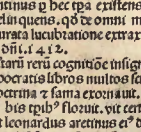 tinus ⁊ hec ipa existens
elinquens. qd̛ de omni m
urata lucubratione extrax
dn̄i .1412.
itarū rerū cognitiōe insign
pocratis libros multos se
octrina ⁊ fama exornauit.
bis tpib⁹ floruit. vit cert
t leonardus aretinus et⁹ d